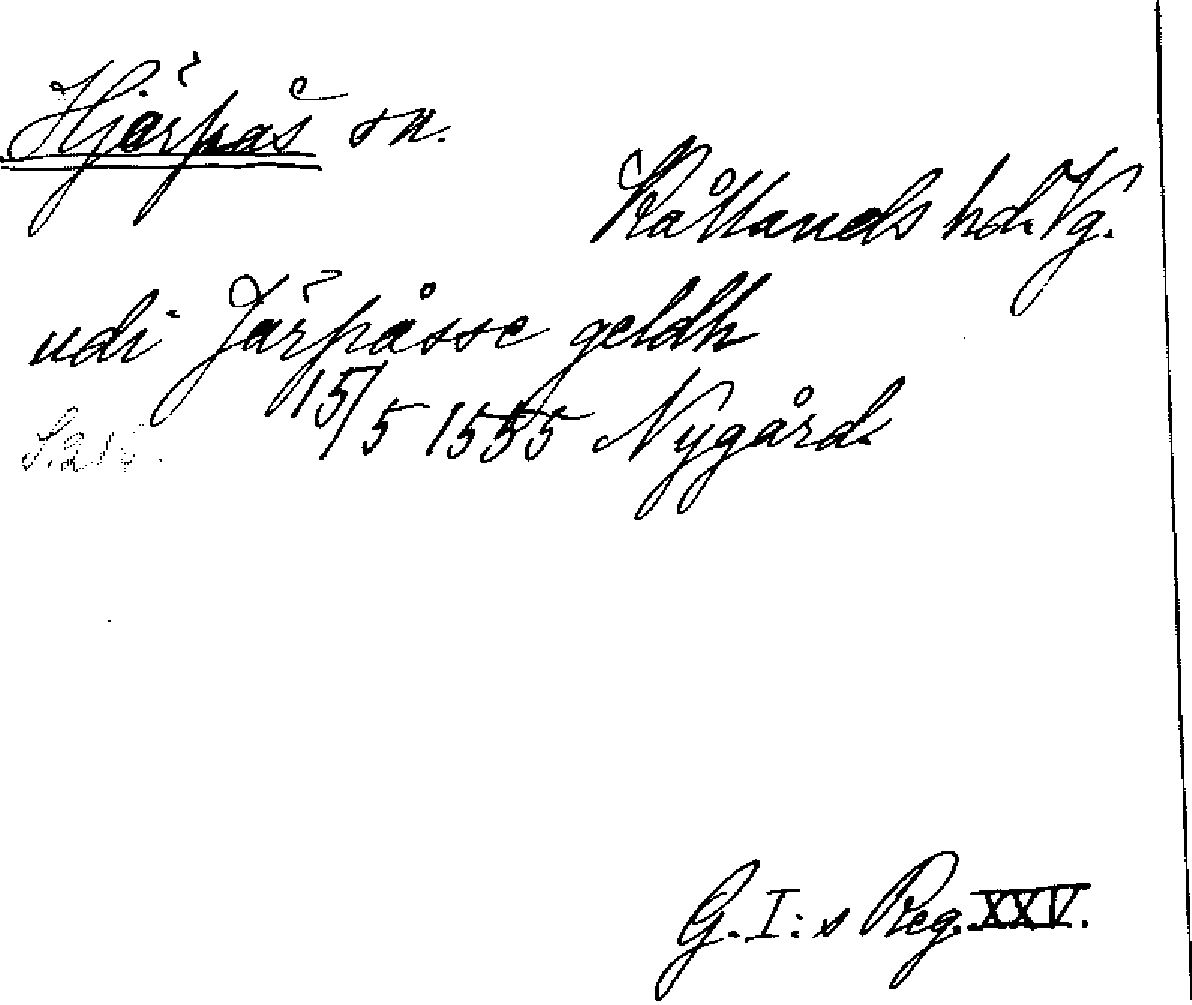 Hjärpås sn.
Kållands hd. Vg.
udi Järpåsse geldh
15/5 1555 Nygård.
G. I:s Reg. XXV.